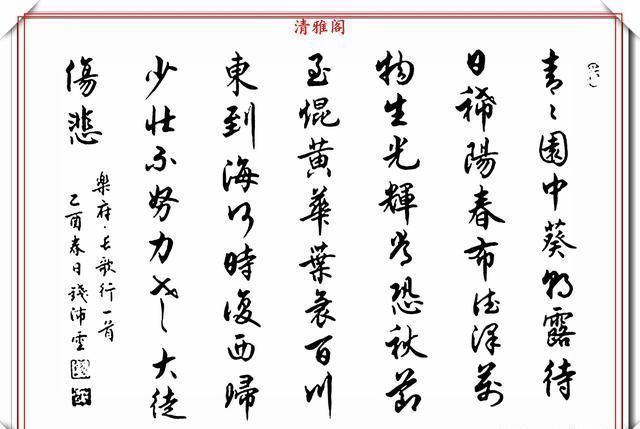 清雅阁
青〻園中葵朝露待
日稀陽春布德澤萬
物生光輝常恐秋節
至焜黃華葉衰百川
東到海何時復西歸
少壯不努力老大徒
傷悲
樂府·長歌行一首
乙酉春日錢沛雲